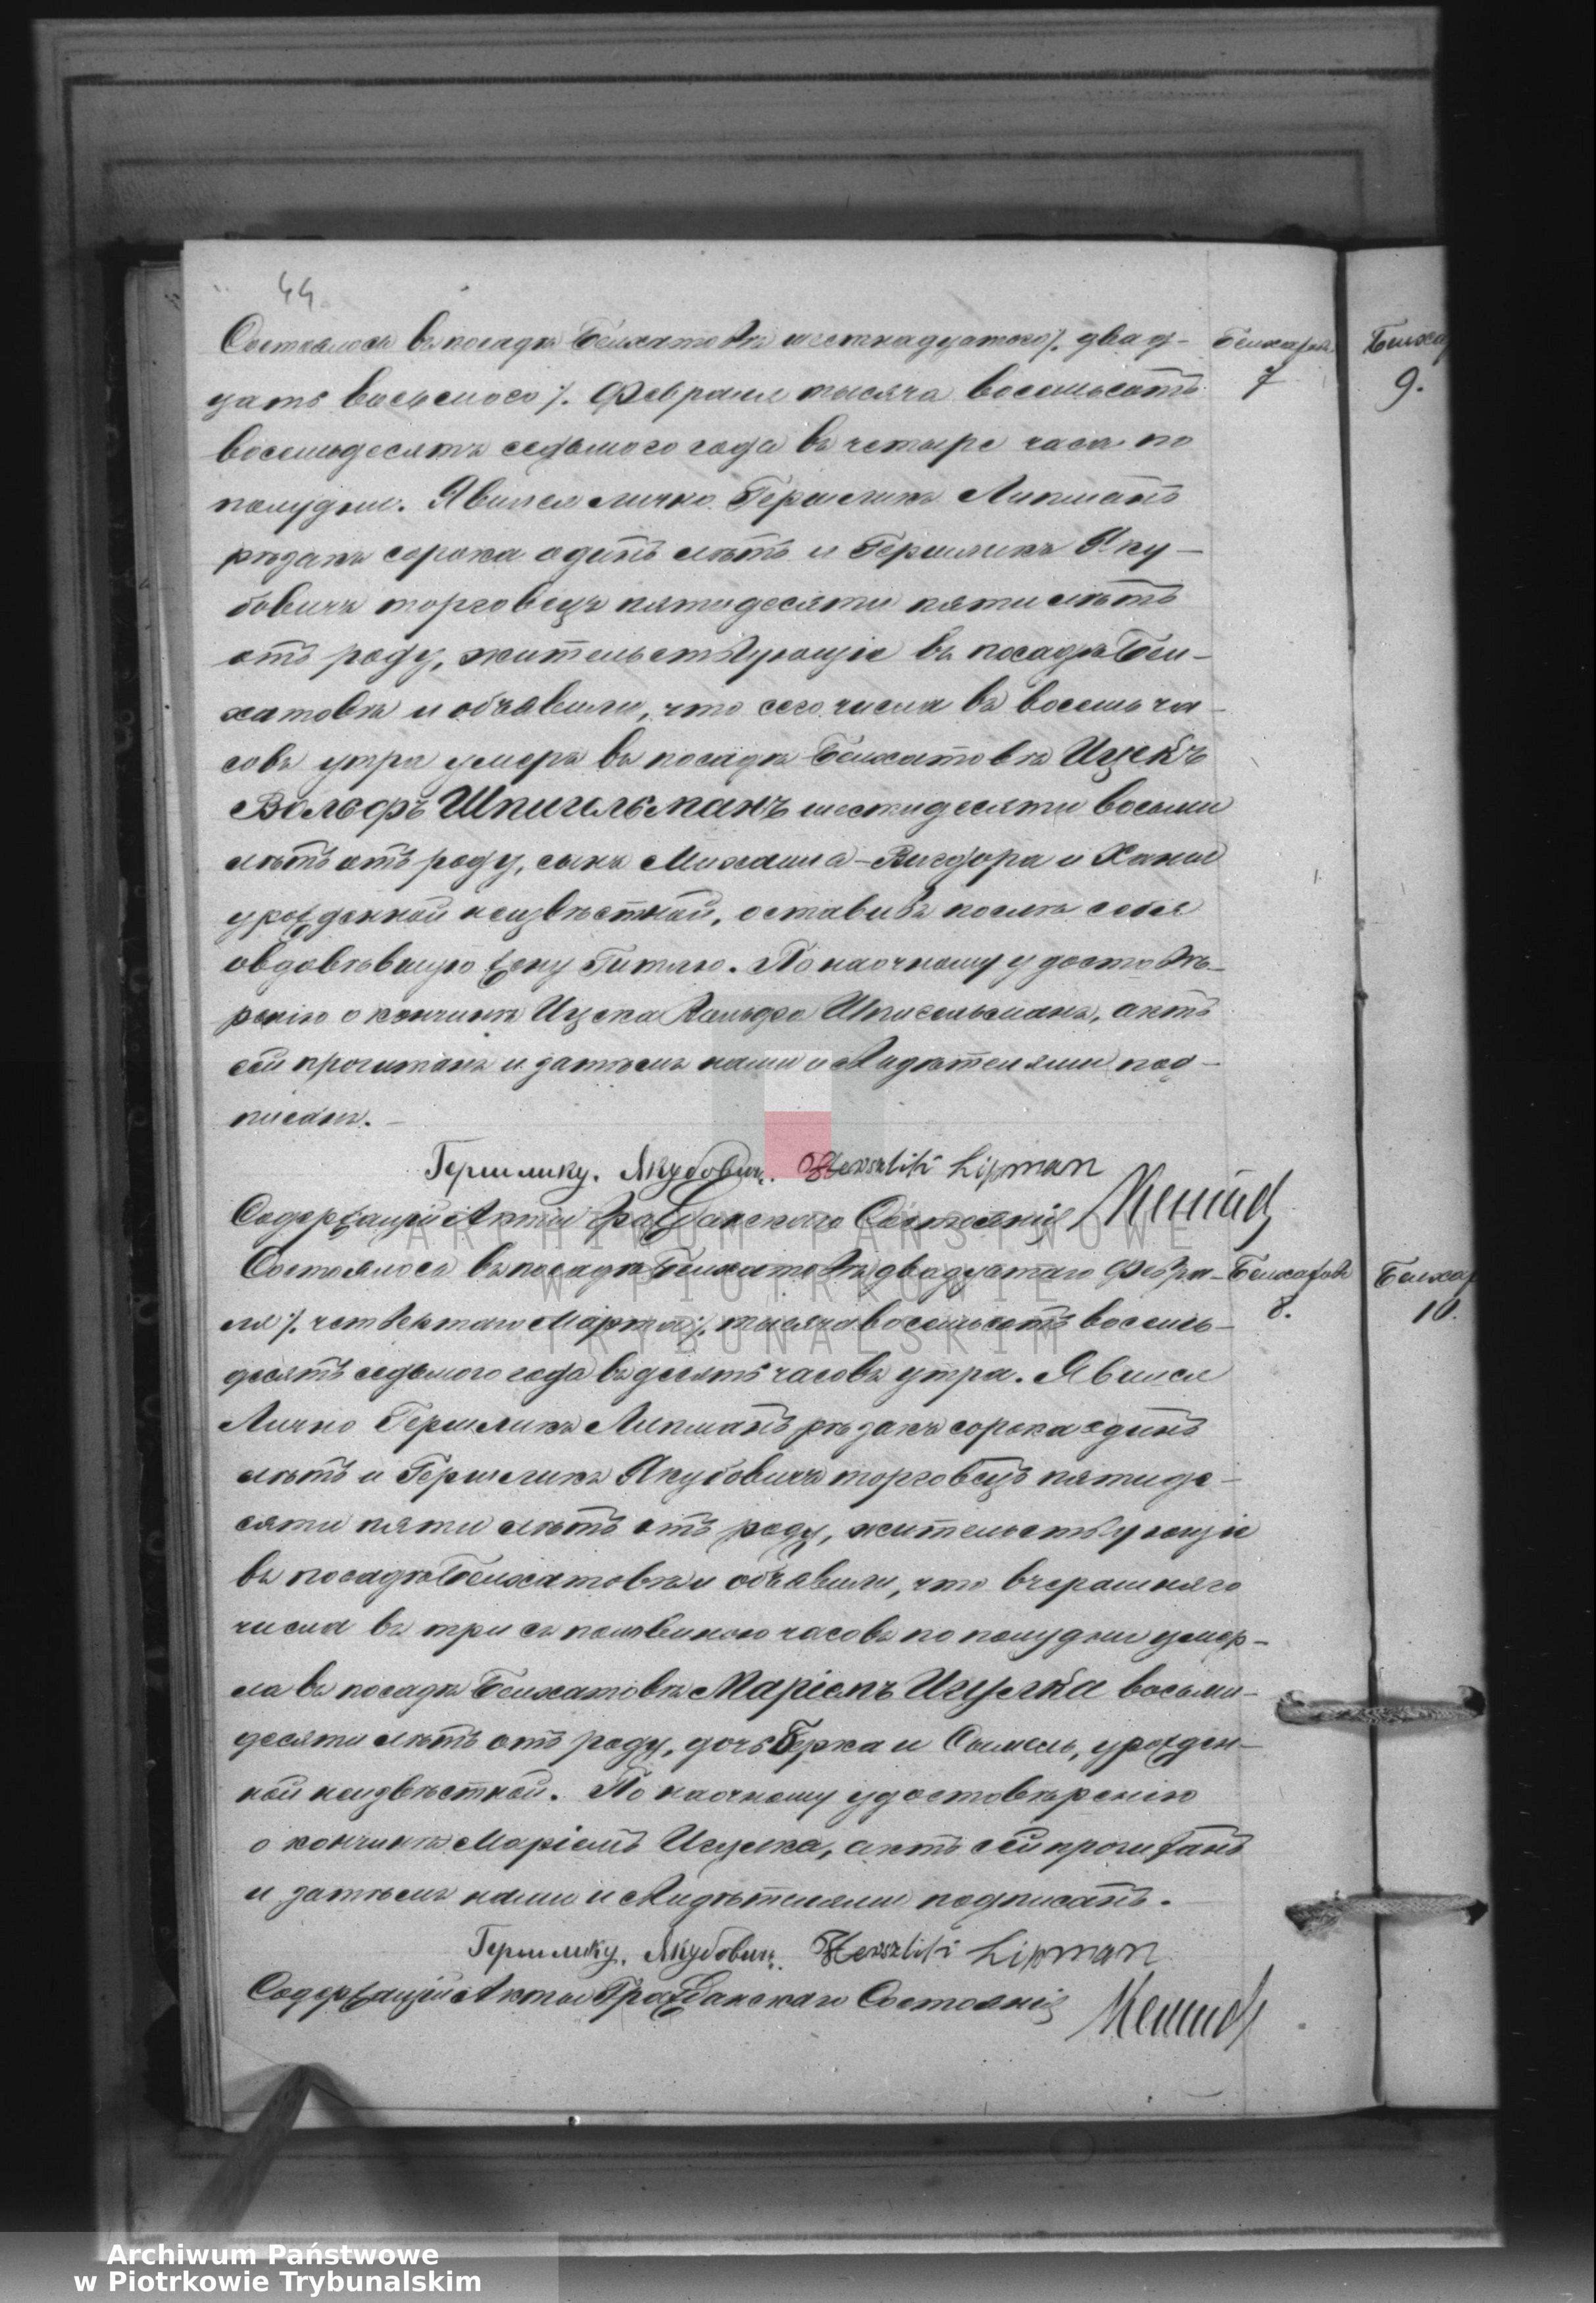 44
Состоялось въ посадѣ Белхатовѣ шестнадцатого /: двад-
Белхатовъ
7
цать восьмого :/ Февраля тысяча восемьсотъ
восемьдесятъ седьмого года въ четыре часа по
полудни. Явился лично Гершликъ Липманъ
рѣзакъ сорока одинъ лѣтъ и Гершликъ Яку-
бовичъ торговецъ пятидесяти пяти лѣтъ
отъ роду, жительствующіе въ посадѣ Бел-
хатовѣ и объявили, что сего числа въ восемь ча-
совъ утра умеръ въ посадѣ Белхатовѣ Ицекъ
Вольфъ Шпигельманъ шестидесяти восьми
лѣтъ отъ роду, сынъ Михаила-Вигдора и Ханы
урожденной неизвѣстной, оставивъ послѣ себя
овдовѣвшую жену Гитлю. По наочному удостовѣ-
ренію о кончинѣ Ицека Вольфа Шпигельмана, актъ
сей прочитанъ и затѣмъ нами и свидѣтелями под-
писанъ. —
Гершлику. Якубовичъ. Herszlik Lipman
Содержащій Акты Гражданского Состоянія
ARCHIWUM PAŃSTWOWE
W PIOTRKOWIE
TRYBUNALSKIM
Состоялось въ посадѣ Белхатовѣ двадцатаго Февра-
Белхатовъ
8.
ля /: четвертаго Марта :/ тысяча восемьсотъ восемь-
десятъ седьмого года въ десять часовъ утра. Явился
Лично Гершликъ Липманъ рѣзакъ сорока одинъ
лѣтъ и Гершликъ Якубовичъ торговецъ пятиде-
сяти пяти лѣтъ отъ роду, жительствующіе
въ посадѣ Белхатовѣ и объявили, что вчерашняго
числа въ три съ половиною часовъ по полудни умер-
ла въ посадѣ Белхатовѣ Маріемъ Ицелка восьми-
десяти лѣтъ отъ роду, дочь Берка и Сымель, урожден-
ной неизвѣстной. По наочному удостовѣренію
о кончинѣ Маріемъ Ицелка, актъ сей прочитанъ
и затѣмъ нами и свидѣтелями подписанъ.
Гершлику. Якубовичъ. Herszlik Lipman
Содержащій Акты Гражданскаго Состоянія
9.
10.
Archiwum Państwowe
w Piotrkowie Trybunalskim